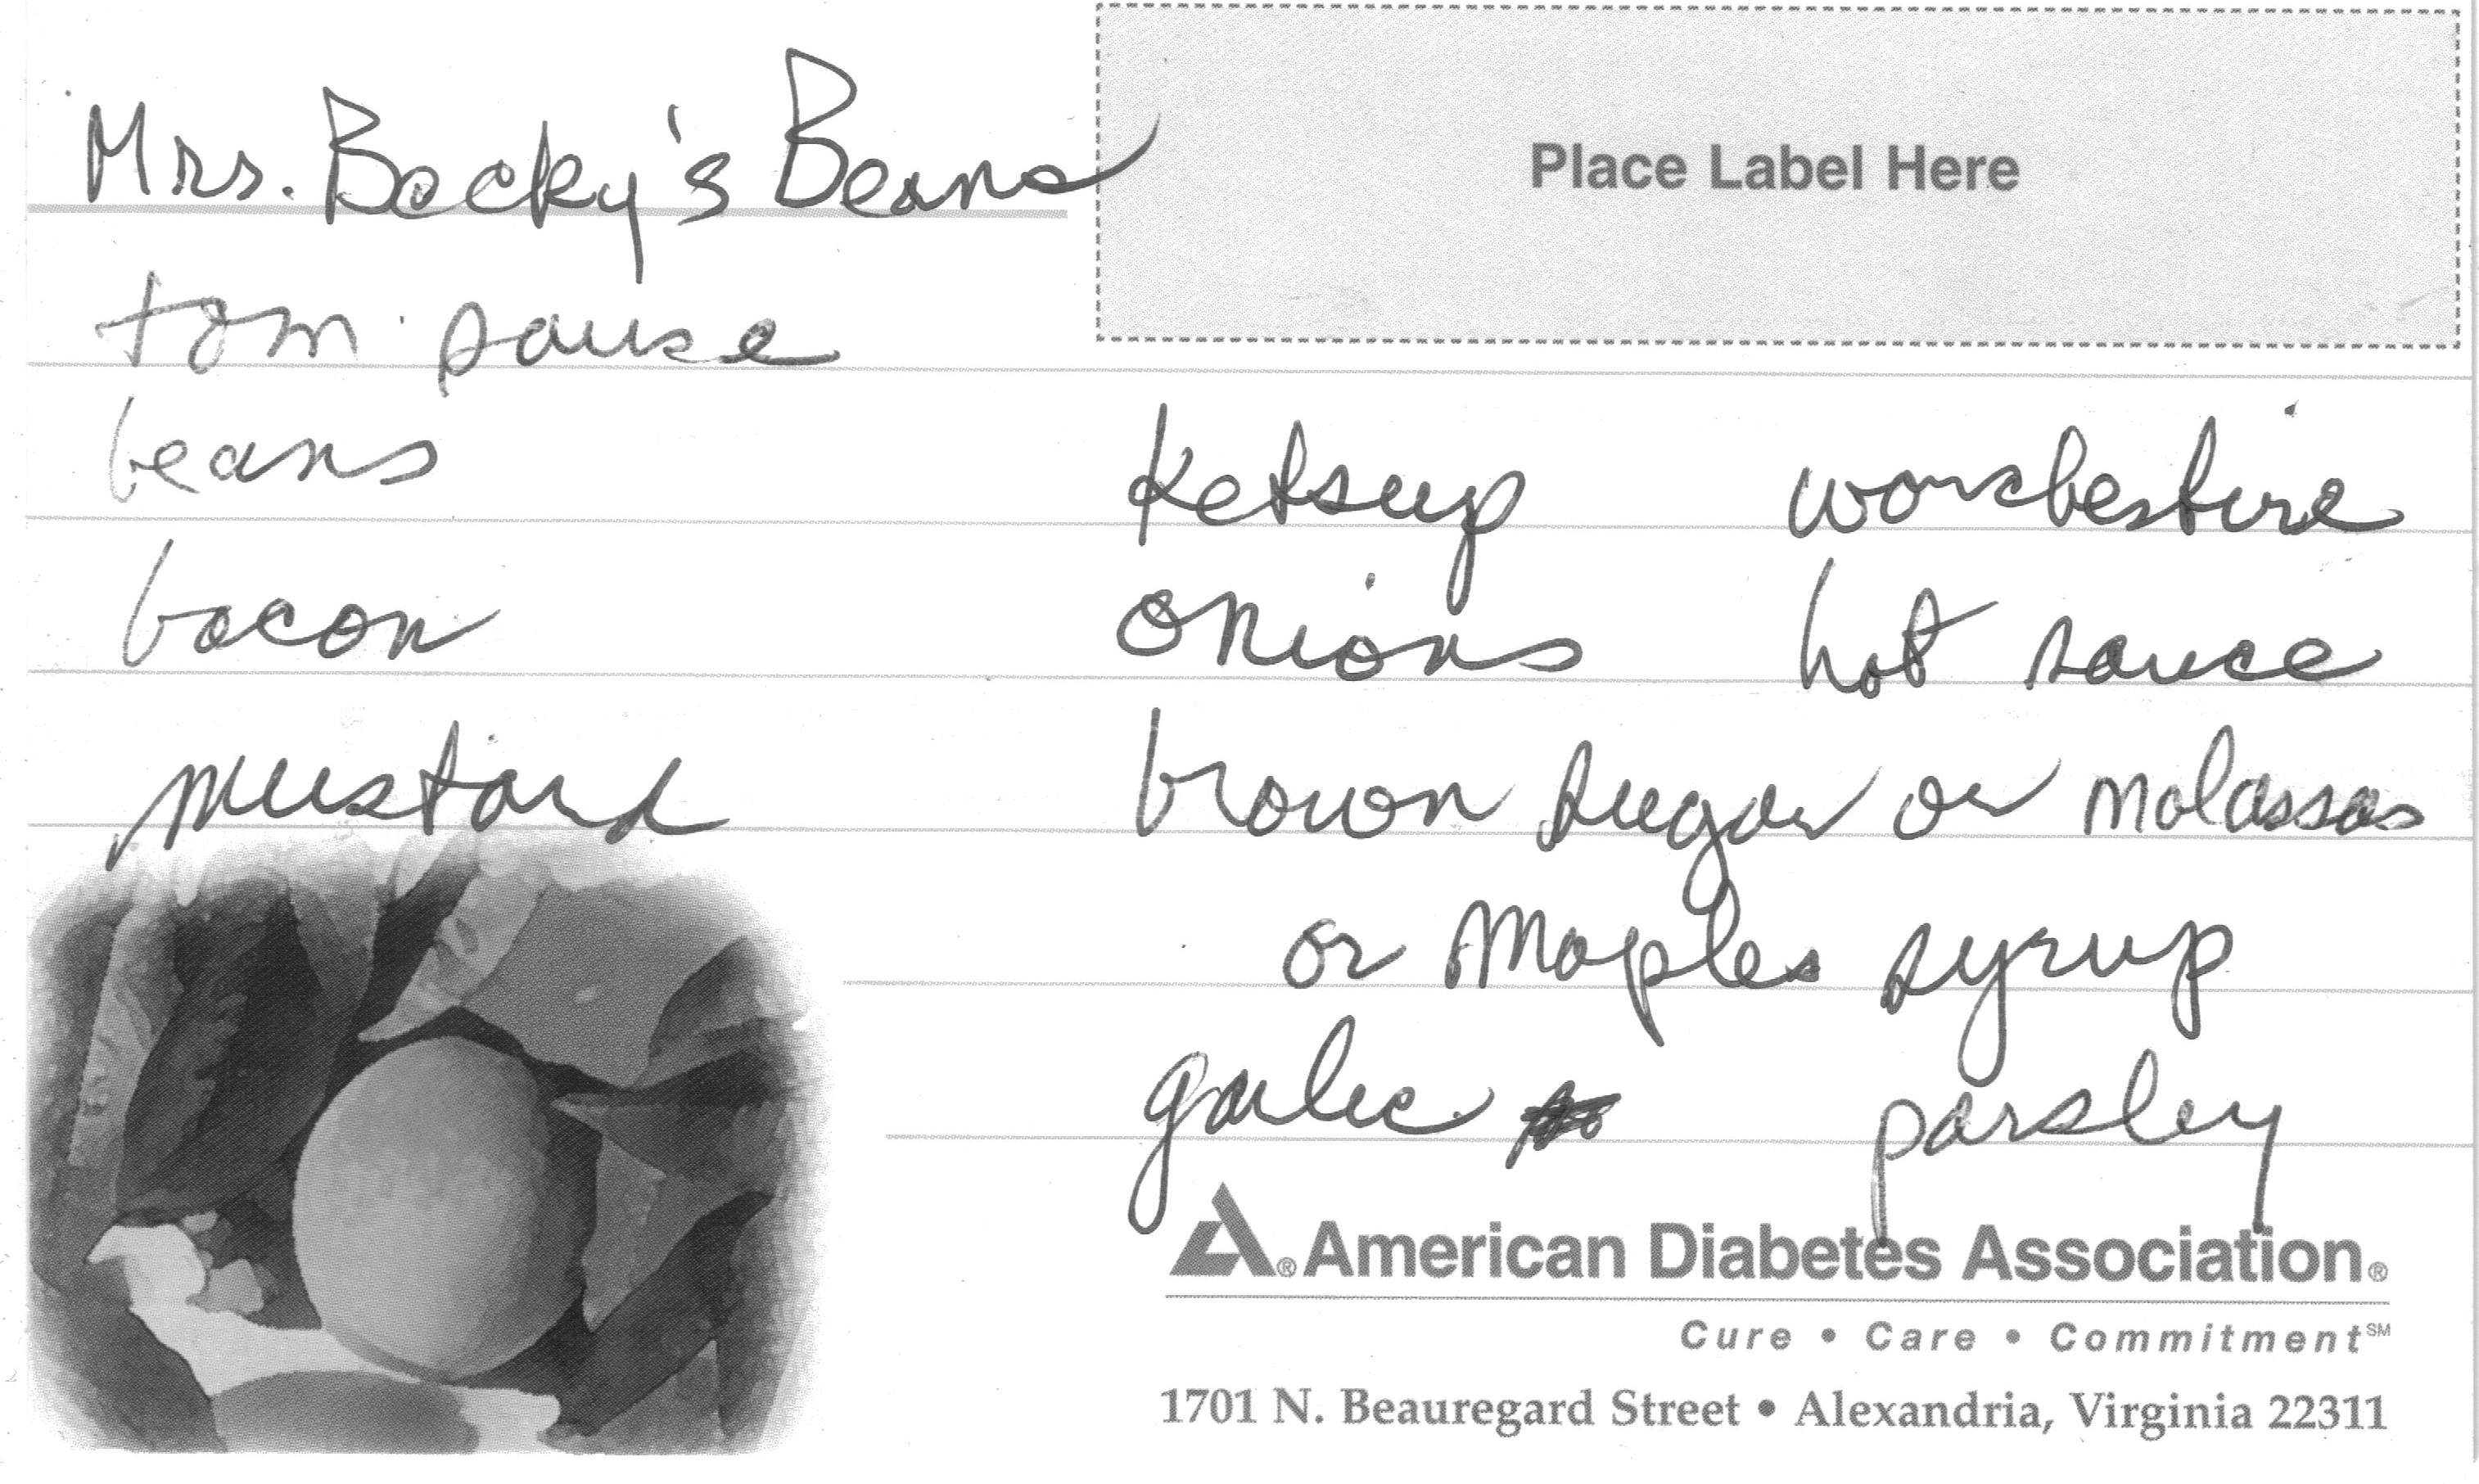 Mrs. Becky's Beans
Place Label Here
tom. sause
beans
bacon
mustard
Ketsup worchestire
onions hot sauce
brown sugar or molassas
or Maples syrup
garlic parsley
American Diabetes Association®
Cure • Care • Commitment℠
1701 N. Beauregard Street • Alexandria, Virginia 22311